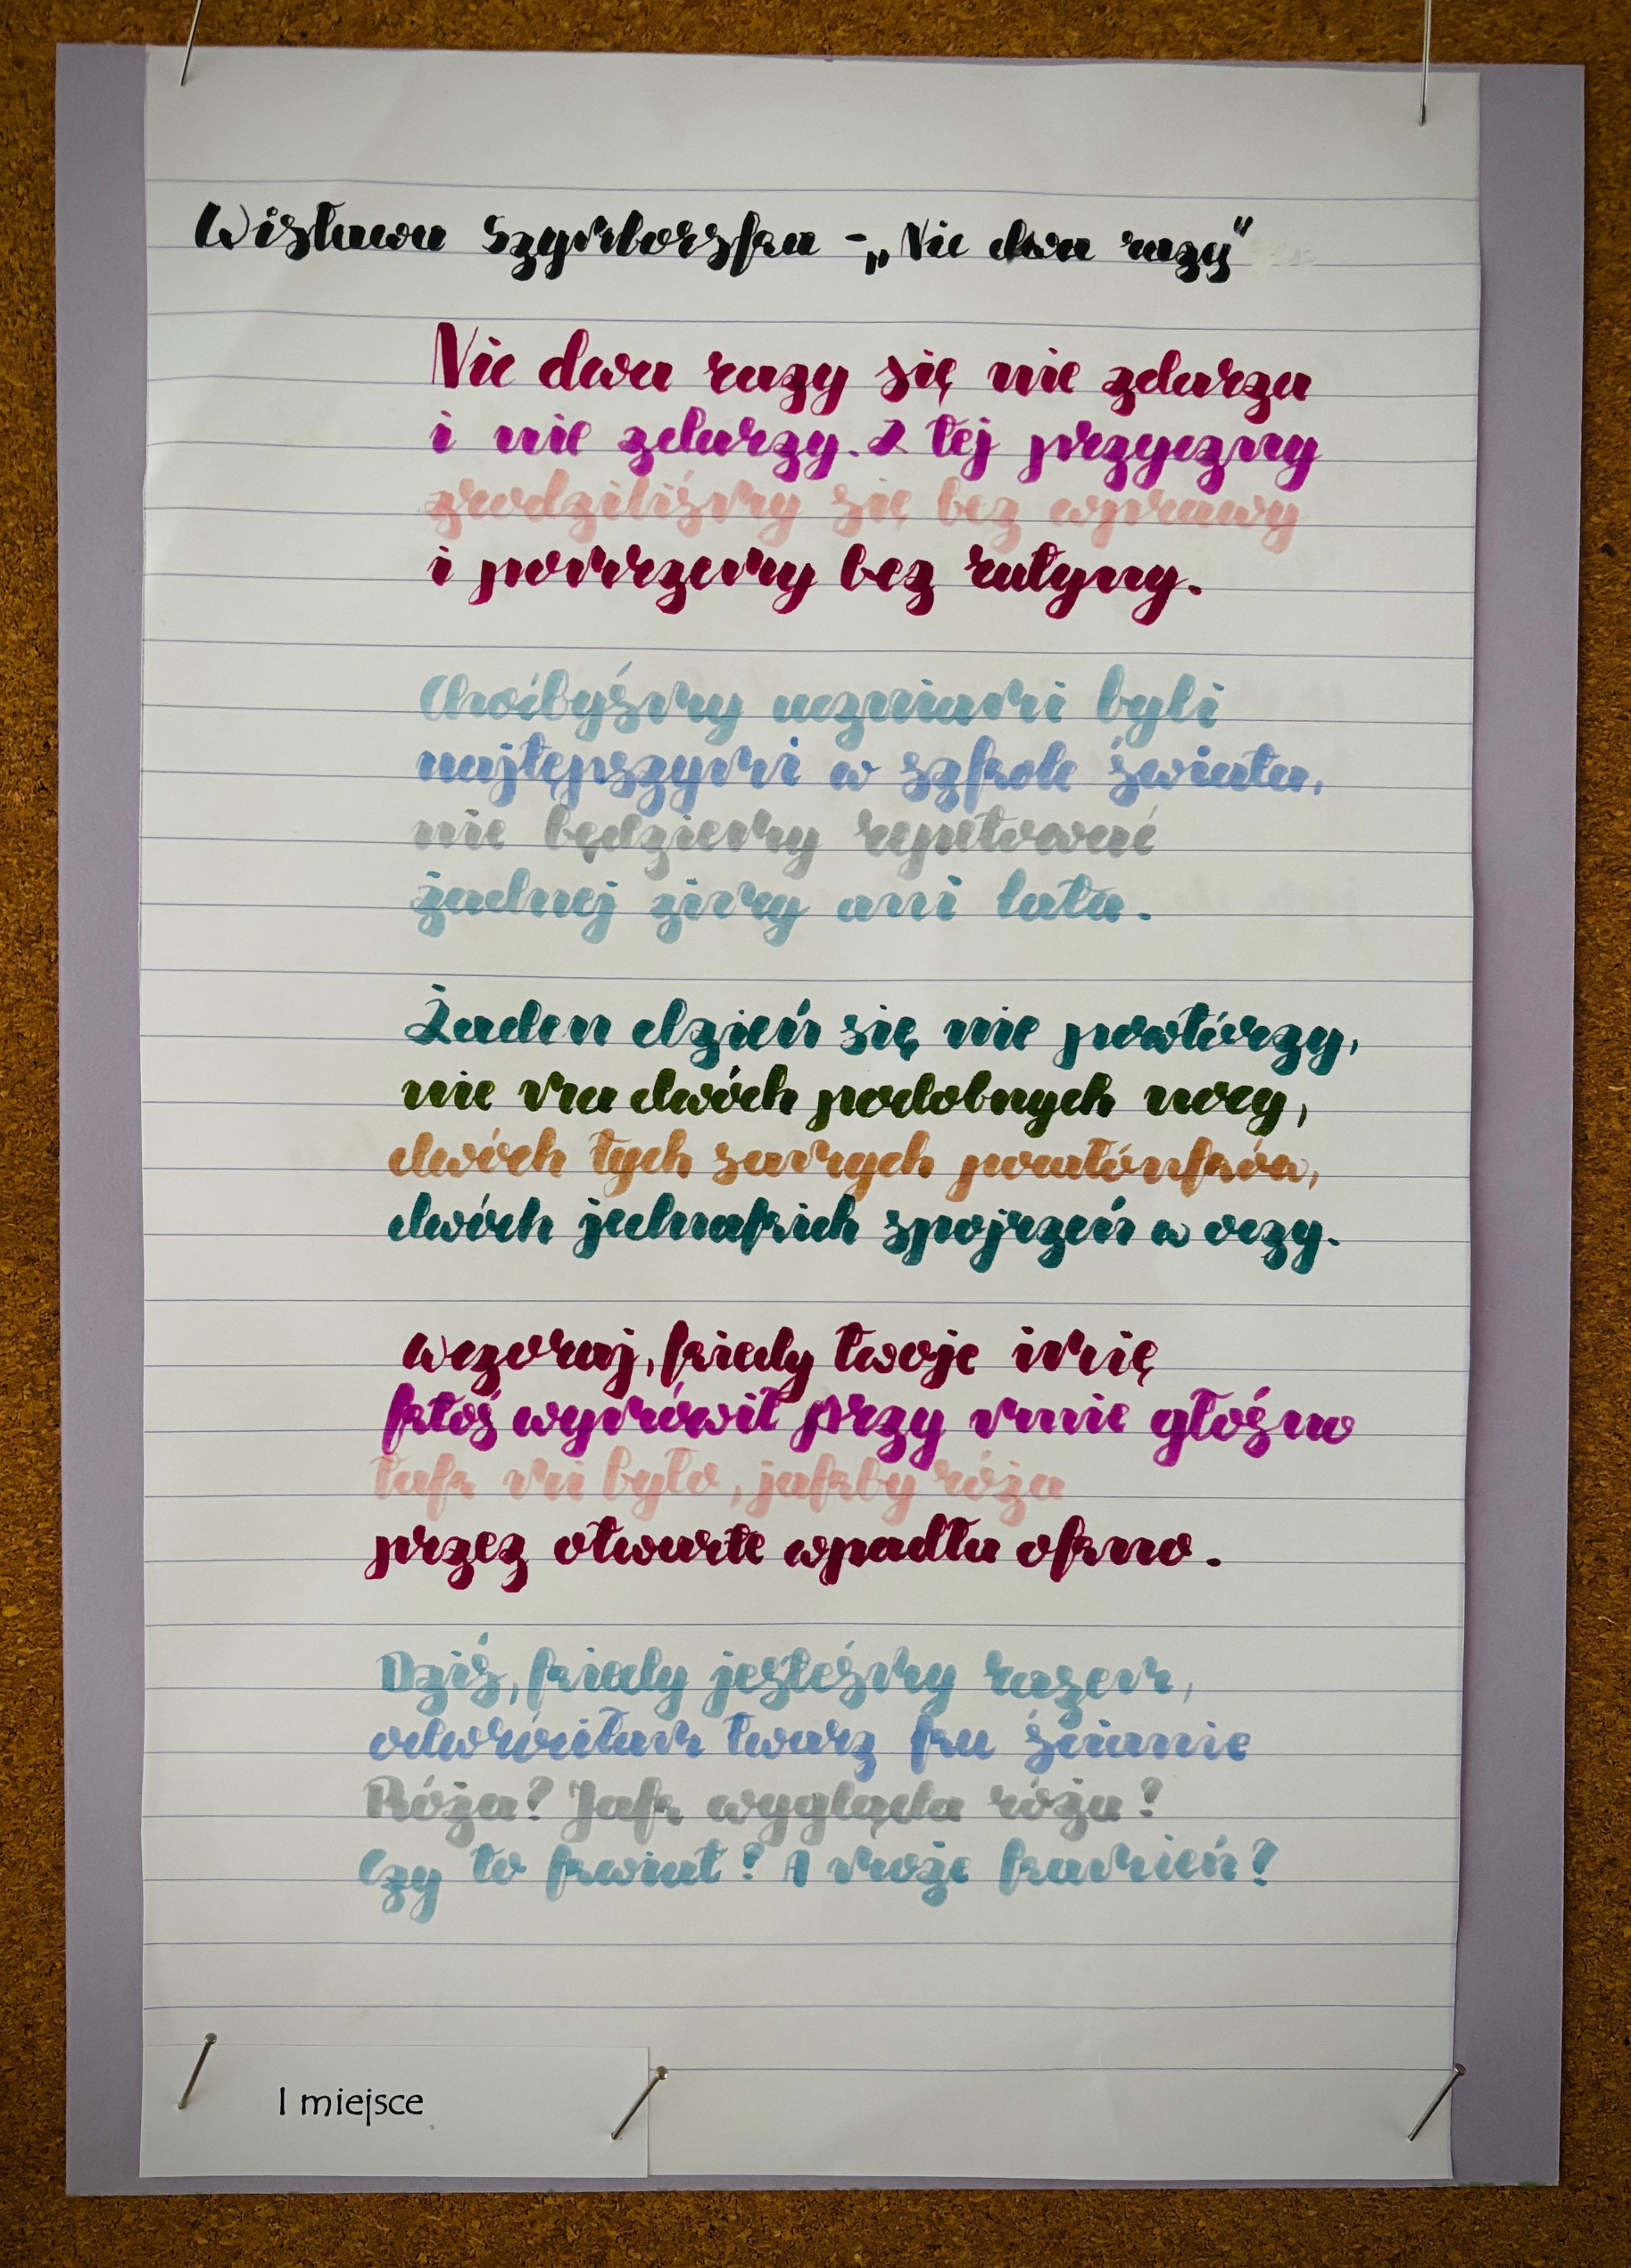 Wisława Szymborska - „Nic dwa razy"
Nic dwa razy się nie zdarza
i nie zdarzy. Z tej przyczyny
zrodziliśmy się bez wprawy
i pomrzemy bez rutyny.
Choćbyśmy uczniami byli
najtępszymi w szkole świata,
nie będziemy repetować
żadnej zimy ani lata.
Żaden dzień się nie powtórzy,
nie ma dwóch podobnych nocy,
dwóch tych samych pocałónków,
dwóch jednakich spojrzeń w oczy.
Wczoraj, kiedy twoje imię
ktoś wymówił przy mnie głośno
tak mi było, jakby róża
przez otwarte wpadła okno.
Dziś, kiedy jesteśmy razem,
odwróciłam twarz ku ścianie
Róża? Jak wygląda róża?
Czy to kwiat? A może kamień?
I miejsce